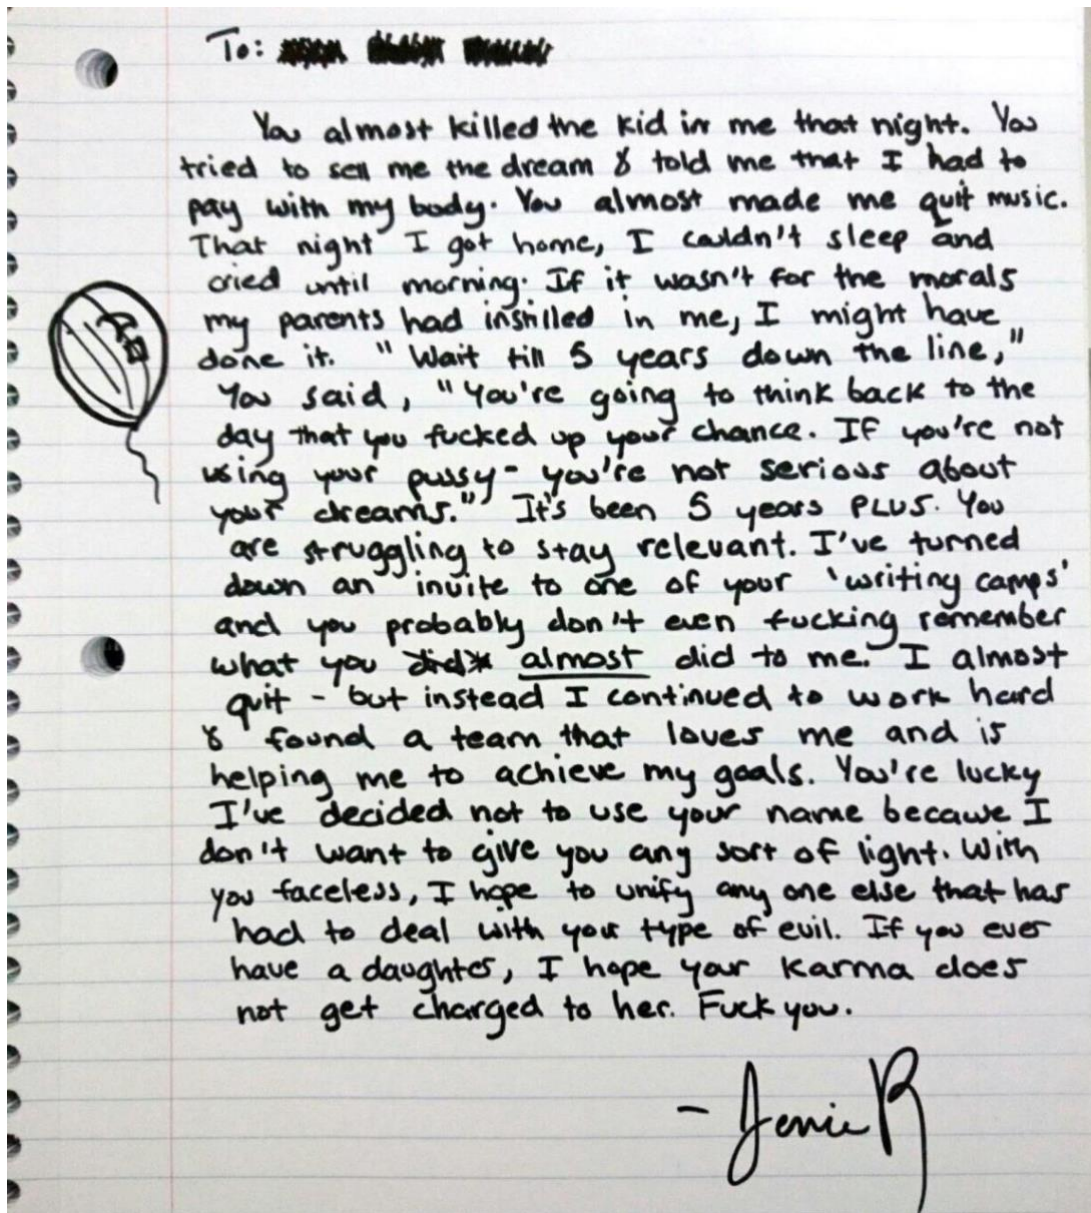 To:
You almost killed the kid in me that night. You
tried to sell me the dream & told me that I had to
pay with my body. You almost made me quit music.
That night I got home, I couldn't sleep and
cried until morning. If it wasn't for the morals
my parents had instilled in me, I might have
done it. "Wait till 5 years down the line,"
You said, "You're going to think back to the
day that you fucked up your chance. If you're not
using your pussy - you're not serious about
your dreams." It's been 5 years PLUS. You
are struggling to stay relevant. I've turned
down an invite to one of your 'writing camps'
and you probably don't even fucking remember
what you did* almost did to me. I almost
quit - but instead I continued to work hard
& found a team that loves me and is
helping me to achieve my goals. You're lucky
I've decided not to use your name because I
don't want to give you any sort of light. With
you faceless, I hope to unify any one else that has
had to deal with your type of evil. If you ever
have a daughter, I hope your karma does
not get charged to her. Fuck you.